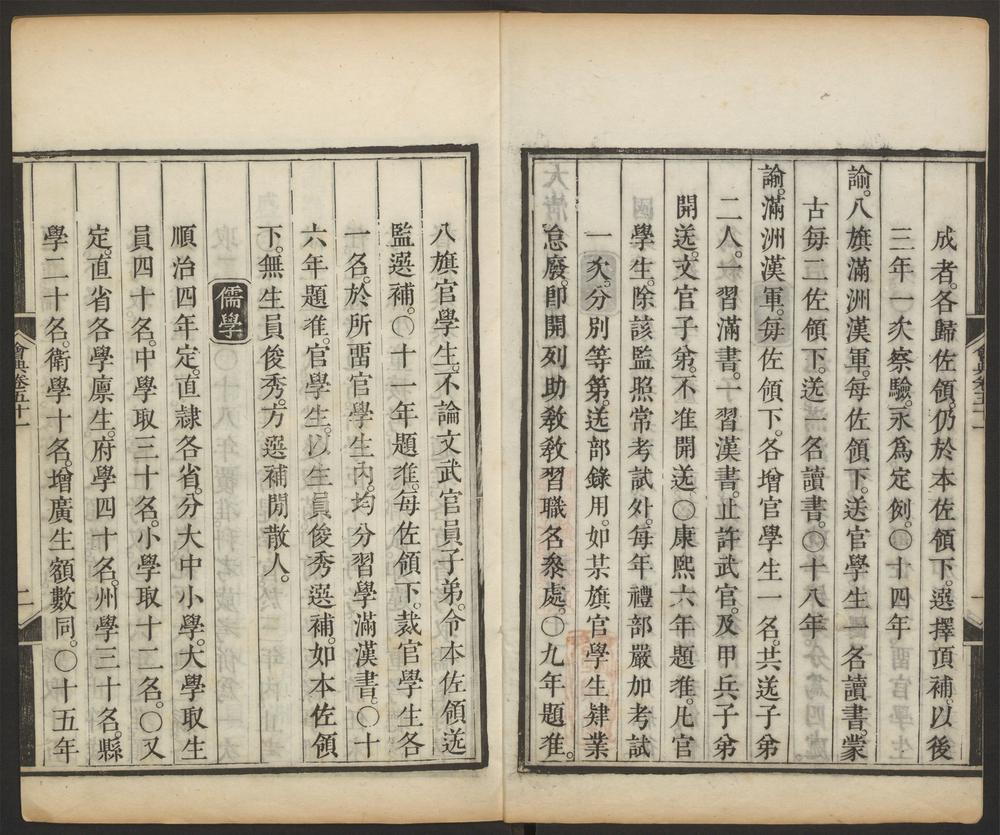 成者。各歸佐領。仍於本佐領下。選擇頂補。以後
三年一次察驗。永爲定例。〇十四年
諭。八旗滿洲漢軍。每佐領下。送官學生一名讀書。蒙
古每二佐領下。送一名讀書。〇十八年
諭。滿洲漢軍。每佐領下。各增官學生一名。共送子弟
二人。一習滿書。一習漢書。止許武官。及甲兵子弟
開送。文官子弟。不准開送〇康熙六年題准。凡官
學生。除該監照常考試外。每年禮部嚴加考試
一次。分別等第。送部錄用。如某旗官學生肄業
怠廢。卽開列助敎敎習職名叅處。〇九年題准。
八旗官學生。不論文武官員子弟。令本佐領送
監選補。〇十一年題准。每佐領下。裁官學生各
一名。於所畱官學生內。均分習學滿漢書。〇十
六年題准。官學生。以生員俊秀選補。如本佐領
下。無生員俊秀。方選補閒散人。
儒學
順治四年定。直隷各省。分大中小學。大學取生
員四十名。中學取三十名。小學取十二名。〇又
定。直省各學廪生。府學四十名。州學三十名。縣
學二十名。衛學十名。增廣生額數同。〇十五年
會典卷五十一
二